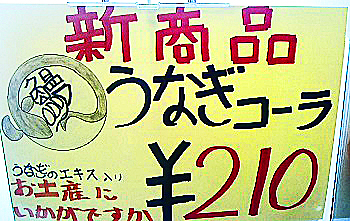 新商品
うなぎコーラ
うなぎのエキス入り
お土産に
いかがですか
¥210